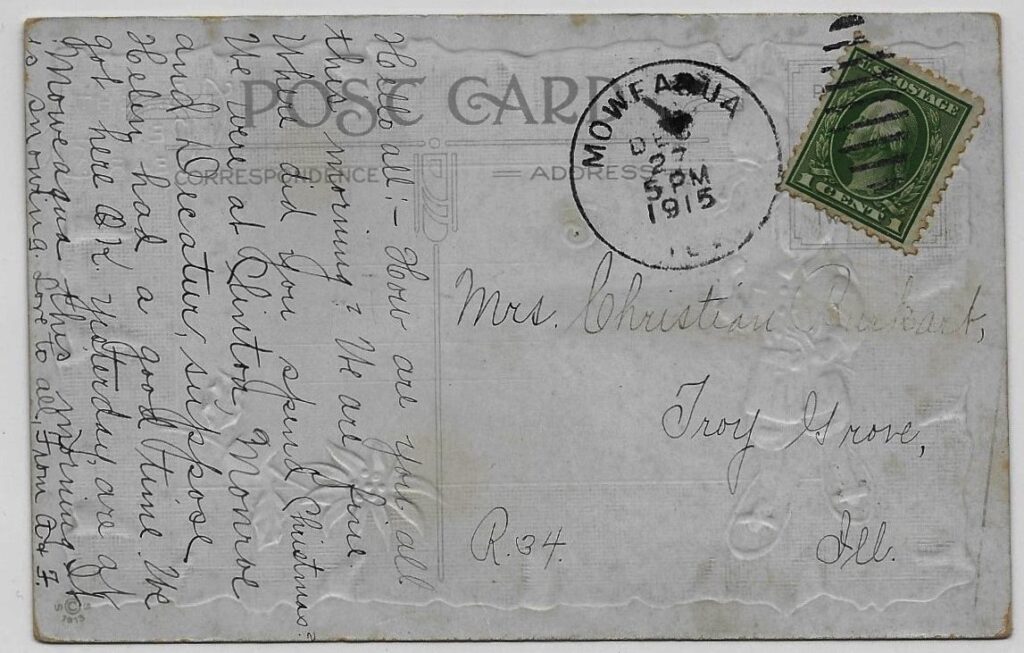 POST CARD
CORRESPONDENCE
ADDRESS
MOWEAQUA
DEC
27
5 PM
1915
ILL
U.S. POSTAGE
1 CENT 1
Mrs. Christian Burkart,
Troy Grove,
R. 34. Ill.
Hello all:- How are you all
this morning? We are fine.
What did you spend Christmas?
We were at Clinton, Monroe
and Decatur, suppose
Helen had a good time. We
got here O.K. yesterday, are at
Moweaqua this morning. It
is snowing. Love to all, From
1915